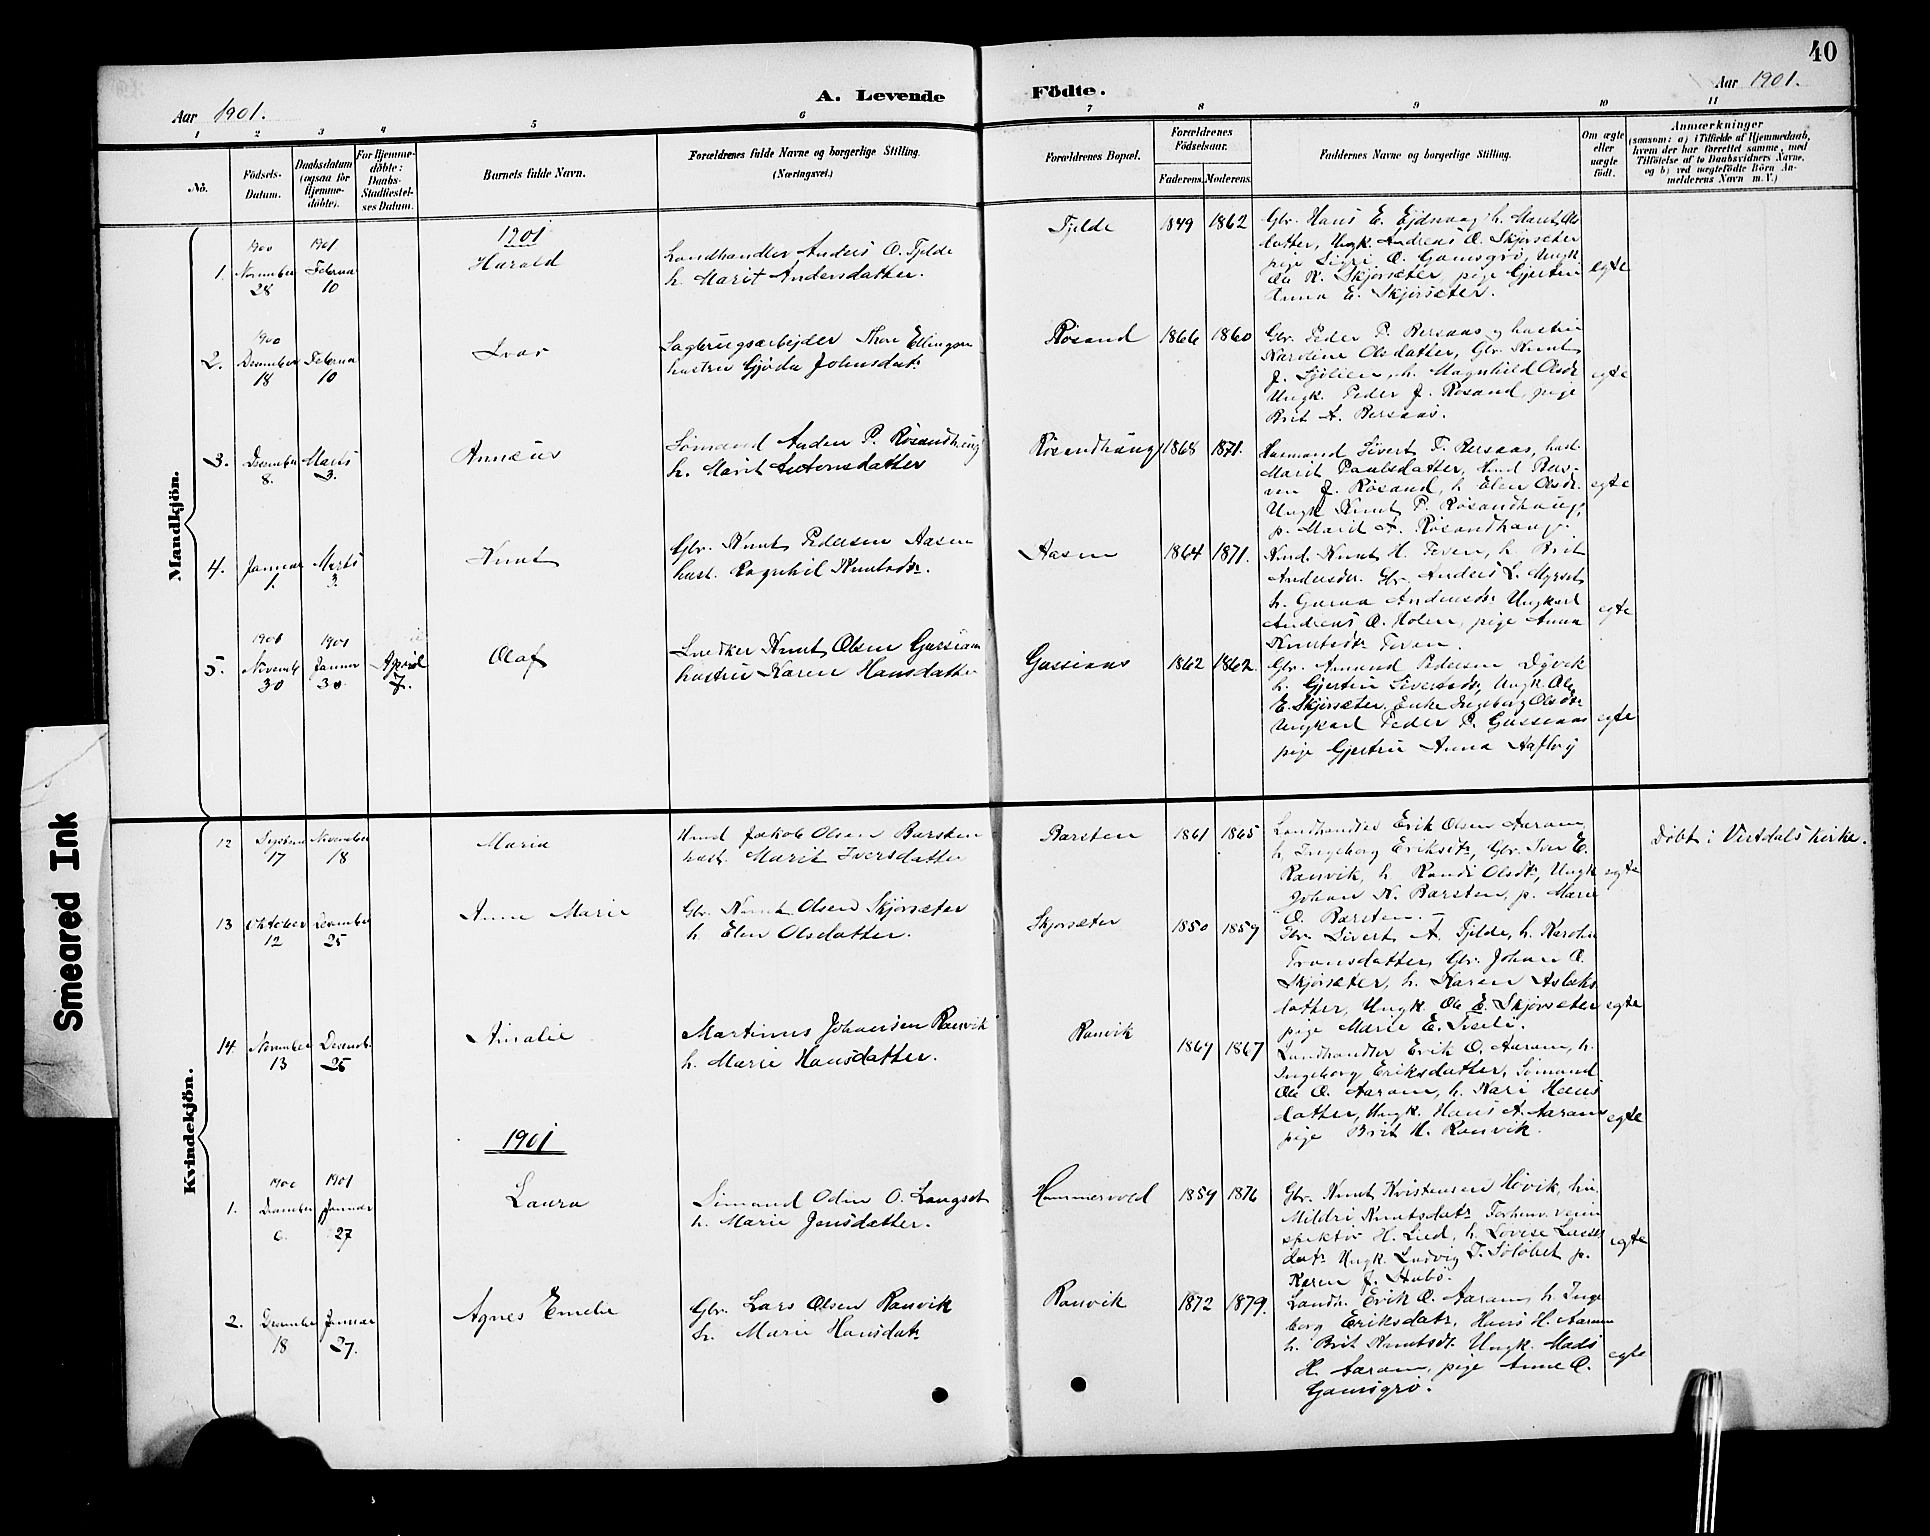 40
Aar 1901.
A. Levende Födte.
Aar 1901.
1 2 3 4 5 6 7 8 9 10 11
No.
Födsels-Datum.
Daabsdatum (ogsaa for Hjemme-döbte).
For Hjemme-döbte: Daabs-Stadfæstel-ses Datum.
Barnets fulde Navn.
Forældrenes fulde Navne og borgerlige Stilling. (Næringsvei.)
Forældrenes Bopæl.
Forældrenes Födselsaar.
Faderens. Moderens.
Faddernes Navne og borgerlige Stilling.
Om ægte eller uægte födt.
Anmærkninger
(saasom: a) i Tilfælde af Hjemmedaab, hvem der har forrettet samme, med Tilföielse af to Daabsvidners Navne, og b) ved uægtefödte Börn An-melderens Navn m. V.)
Mandkjön.
1901
1. 1900 November 28 1901 Februa 10 Harald
Landhandler Anders O. Tjelde
h. Marit Andersdatter.
Tjelde 1849 1862
Gbr. Hans E. Ejdsvaag h. Marit Ols
datter, Ungk. Andreas O. Skjørsæter
pige Sigri O. Gamsgrø, Ungk
Ole K. Skjørsæter, pige Gjertru
Anna E. Skjørsæter.
egte
2. 1900 December 18 Februa 10 Ivar
Sagbrugsarbejder Thore Ellingsen
hustru Gjøda Johnsdatr
Røsand 1866 1860
Gbr. Peder P. Bersaas og hustru
Nardine Olsdatter, Gbr. Knut
J. Sjølien, h. Magnhild Olsdr
Ungk. Peder J. Røsand, pige
Brit A. Bersaas.
egte
3. December 8. Marts 3. Annæus
Sømand Anders P. Røsandhaug
h. Marit Antonsdatter
Røsandhaug 1868 1871.
Husmand Sivert T. Bersaas, hust
Marit Paulsdatter, Hmd
J. Røsand, h. Elen Olsdr.
Ungk Knut P. Røsandhaug,
p. Marit A. Røsandhaug.
egte
4. Januar 1. Marts 3 Knut
Gbr. Knut Pedersen Aasen
hust. Ragnhil Knutsdr.
Aasen 1864 1871.
Hmd. Knut H. Teven, h. Brit
Andersdr. Gbr. Anders L. Myrset
h. Guraa Andersdr. Ungkarl
Andreas O. Holen, pige Anna
Knutsdr Teven.
egte
5. 1900 Novemb 30 1901 Januar 30 April 7. Olaf
Snedker Knut Olsen Gussiaas
hustru Karen Hansdatter
Gussiaas 1862 1862.
Gbr. Amund Pedersen Dyvik
h. Gjertru Sivertsdr, Ungk Ole
E. Skjørsæter, Enke Ingeborg Olsdr
Ungkarl Peder P. Gussiaas
pige Gjertru Anna Aafløy
egte
Kvindekjön.
12 17 November 18 Maria
Hmd Jakob Olsen Barsten
hust. Marit Iversdatter
Barsten 1861 1865
Landhandler Erik Olsen Aaram,
h. Ingeborg Eriksdtr, Gbr. Iver E.
Ranvik, h Randi Olsdtr, Ungk
Johan K. Barsten, p. Marie
O. Barsten.
egte
Døbt i Vistdals kirke.
13 Oktober 12 December 25 Anne Marie
Gbr. Knut Olsen Skjørsæter
h Elen Olsdatter.
Skjørsæter 1850 1859
Gbr. Sivert A. Tjelde, h. Karoline
Tronsdatter, Gbr. Johan O.
Skjørsæter, h. Karen Aslaks
datter, Ungk. Ole E. Skjørsæter
pige Marie E. Tveeli.
egte
14. November 13 Decemb. 25 Amalie
Martinus Johansen Ranvik
h. Marie Hansdatter.
Ranvik 1867 1867
Landhandler Erik O. Aaram, h.
Ingeborg Eriksdatter, Sømand
Ole O. Aaram, h. Kari Hans
datter, Ungk. Hans A. Aaram
pige Brit H. Ranvik.
egte
1901
1. 1900 December 6. 1901 Januar 27 Laura
Sømand Odin O. Langset
h. Marie Jensdatter.
Hammervold 1859 1876
Gbr. Knut Kristensen Høvik, hu.
Mildri Knutsdatr
spektør H. Lied, h. Lovise Lasse
datr Ungk. Ludvig T. Toløbet p.
Karen J. Stubø.
egte
2. December 18 Januar 27. Agnes Emelie
Gbr. Lars Olsen Ranvik
h. Marie Hansdatr
Ranvik 1872 1879.
Landh. Erik O. Aaram, h Inge
borg Eriksdatr, Hans H. Aaram
h. Brit Knutsdr. Ungk. Mads
H. Aaram, pige Anne O.
Gamsgrø.
egte
Smeared Ink